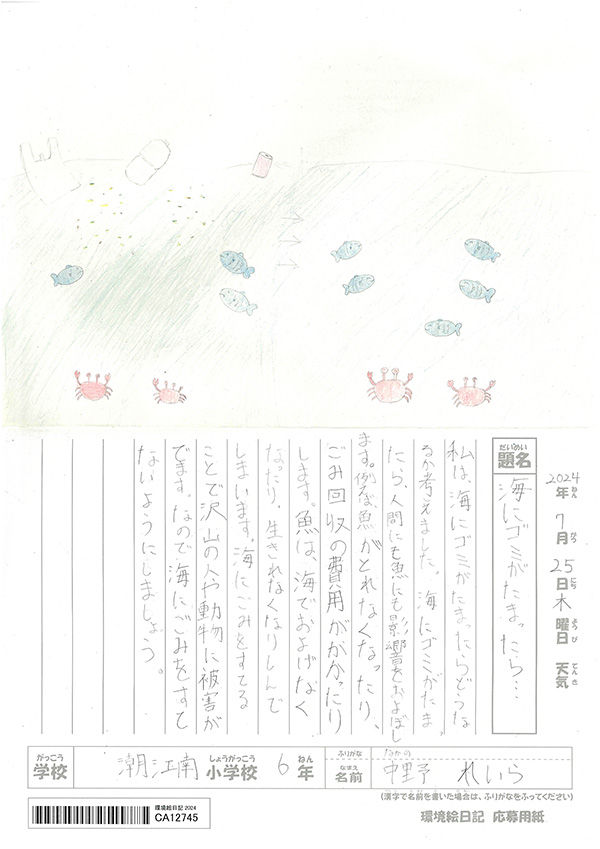 2024年ねん7月がつ25日にち木曜日ようび 天気てんき
だいめい
題名
海にゴミがたまったら…
私は、海にゴミがたまったらどうな
るか考えました。海にゴミがたまっ
たら、人間にも魚にも影響をおよぼし
ます。例えば、魚がとれなくなったり、
ごみ回収の費用がかかったり
します。魚は、海でおよげなく
なったり、生きれなくなりしんで
しまいます。海にごみをすてる
ことで沢山の人や動物に被害が
でます。なので海にごみをすて
ないようにしましょう。
がっこう
学校
潮江南
しょうがっこう
小学校
6
ねん
年
ふりがな
なかの
なまえ
名前
中野 れいら
(漢字で名前を書いた場合は、ふりがなをふってください)
環境絵日記 2024
CA12745
環境絵日記 応募用紙